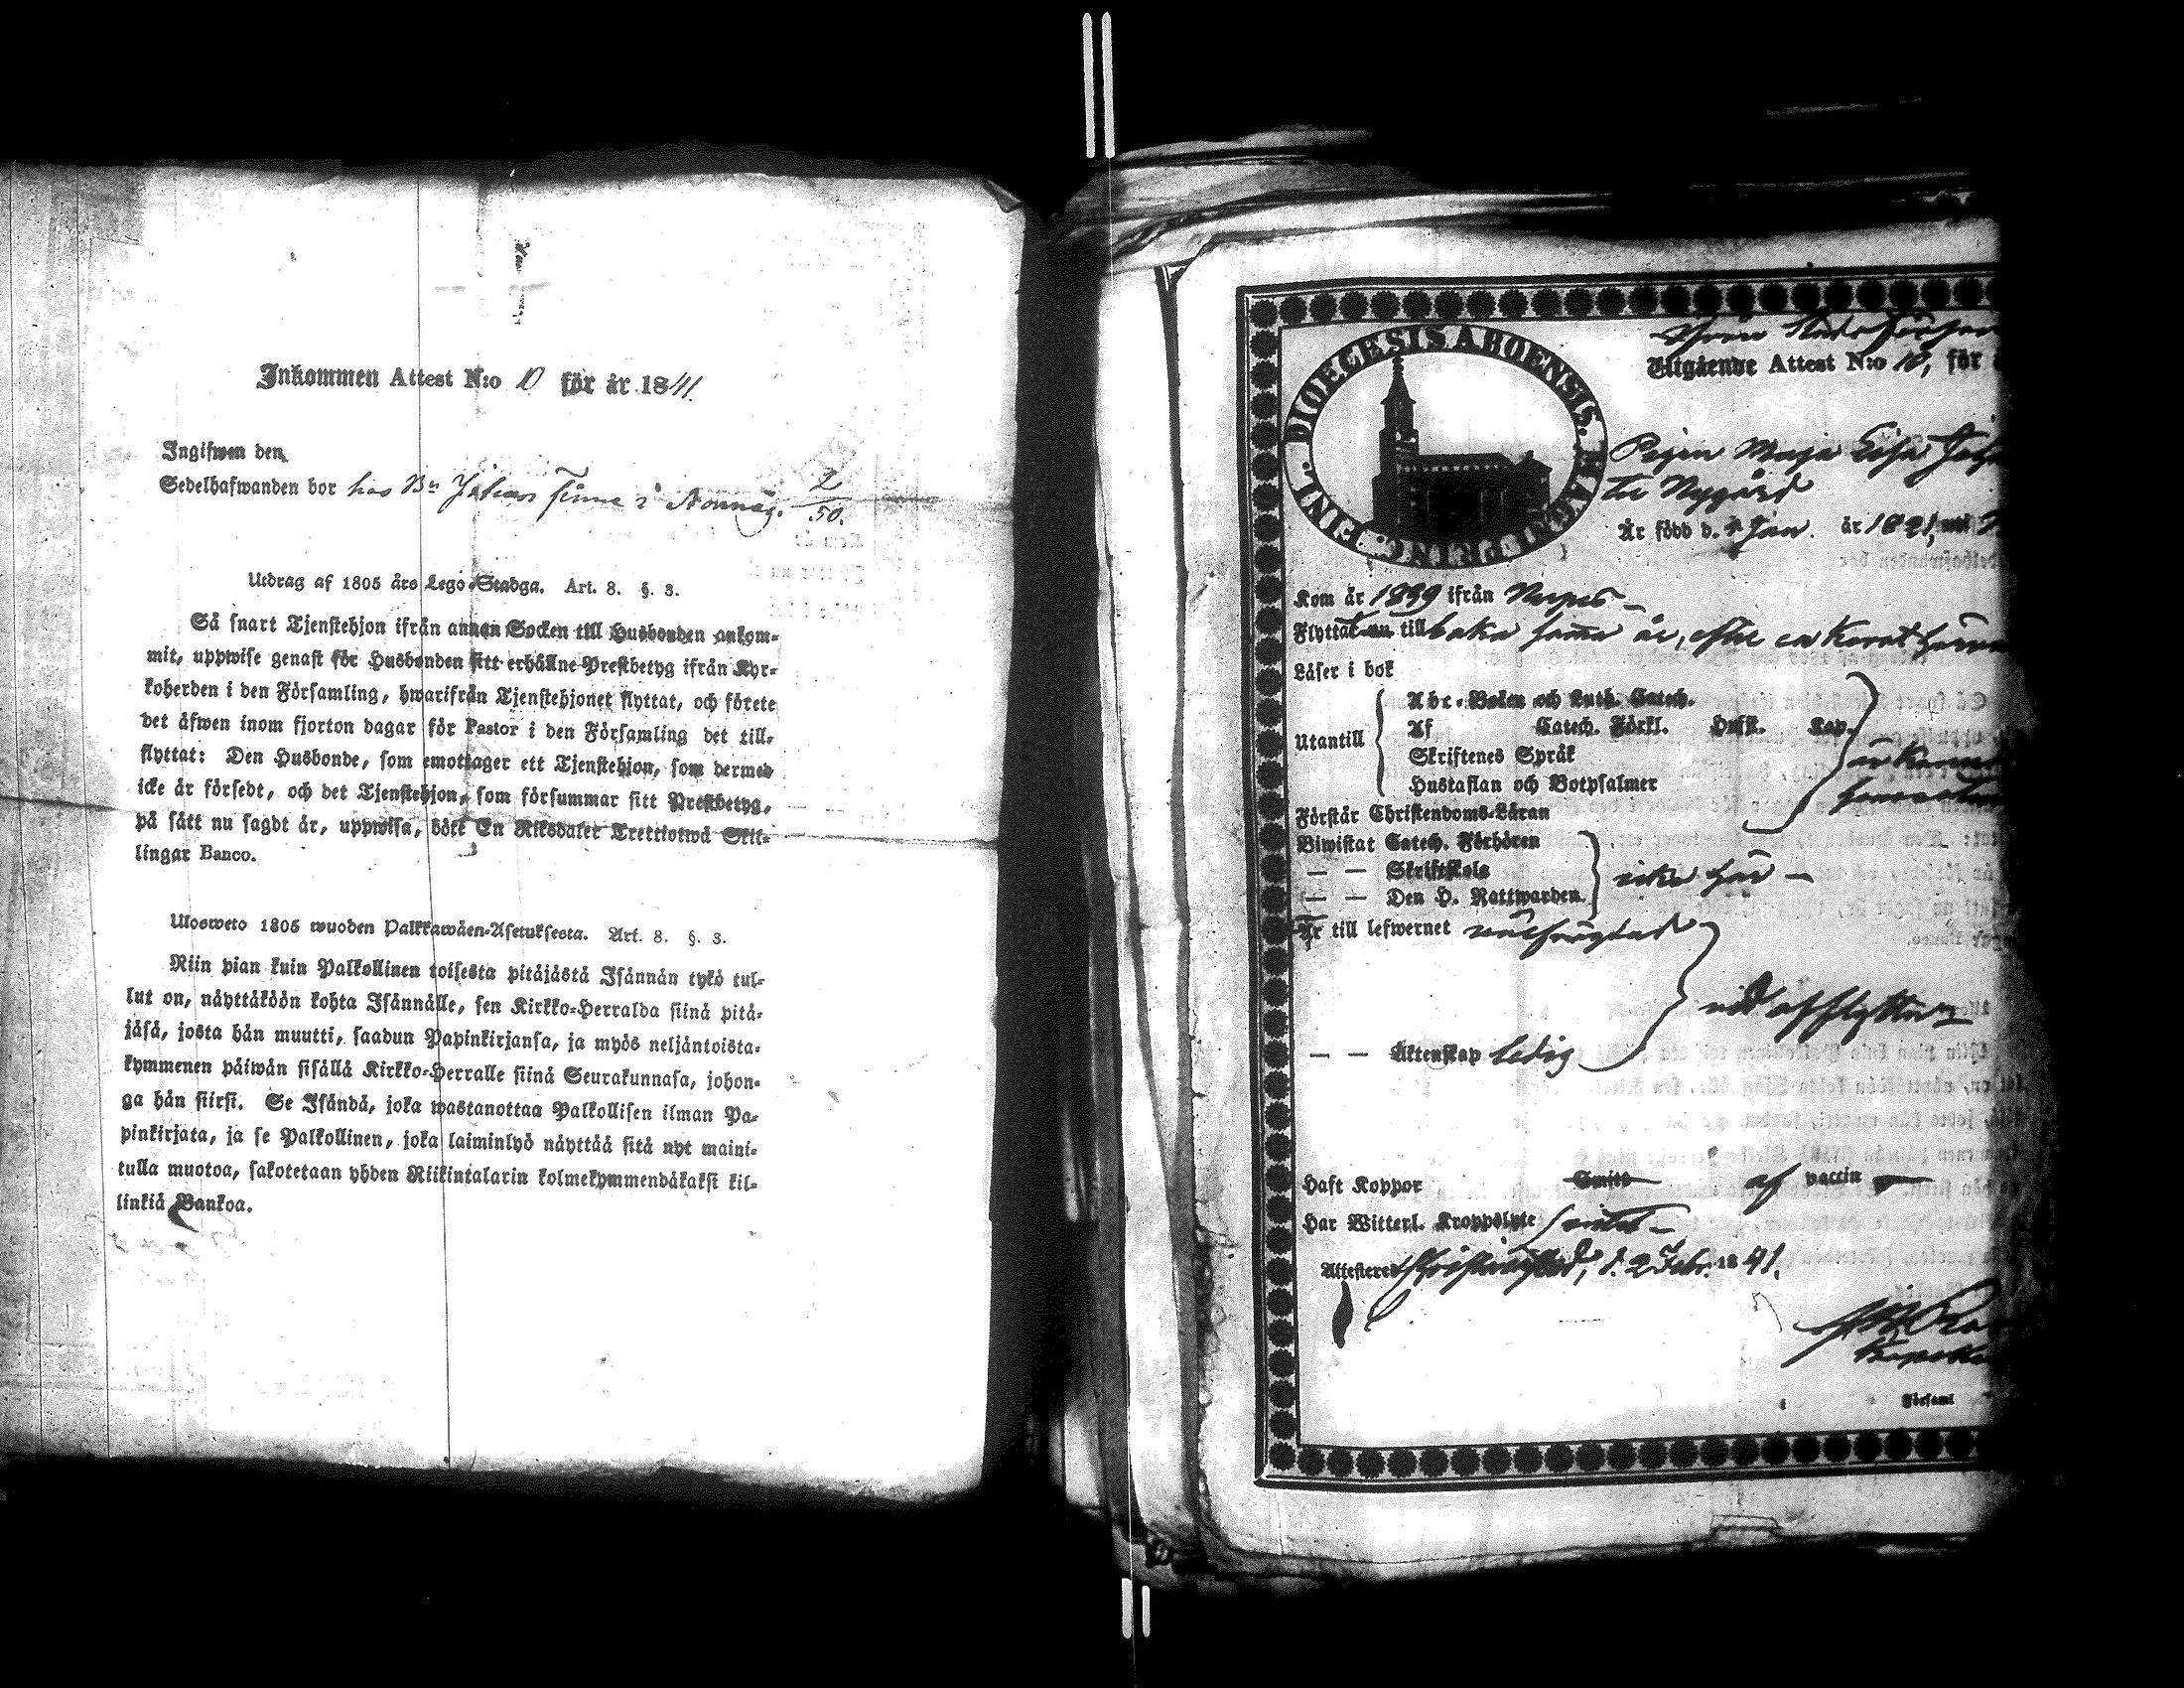 Inkommen Attest N:o 10 för år 1841.
Ingifwen den
Sedelhafwanden bor hos Bn Johan Finne i Nornäs. 2/50.
Utdrag af 1805 års Lego-Stadga. Art. 8. §. 3.
Så snart Tjenstehjon ifrån annan Socken till Husbonden ankom-
mit, uppwise genast för Husbonden sitt erhållne Prestbetyg ifrån Kyr-
koherden i den Församling, hwarifrån Tjenstehjonet flyttat, och förete
det äfwen inom fjorton dagar för Pastor i den Församling det till-
flyttat: Den Husbonde, som emottager ett Tjenstehjon, som dermed
icke är försedt, och det Tjenstehjon, som försummar sitt Prestbetyg,
på sätt nu sagdt är, uppwisa, böte En Riksdaler Trettiotwå Skil-
lingar Banco.
Ulosweto 1805 wuoden Palkkawäen-Asetuksesta. Art. 8. §. 3.
Niin pian kuin Palkollinen toisesta pitäjästä Isännän tykö tul-
lut on, näyttäköön kohta Isännälle, sen Kirkko-Herralda siinä pitä-
jäsä, josta hän muutti, saadun Papinkirjansa, ja myös neljäntoista-
kymmenen päiwän sisällä Kirkko-Herralle siinä Seurakunnasa, johon-
ga hän siirsi. Se Isändä, joka wastanottaa Palkollisen ilman Pa-
pinkirjata, ja se Palkollinen, joka laiminlyö näyttää sitä nyt maini-
tulla muotoa, sakotetaan yhden Riikintalarin kolmekymmendäkaksi kil-
linkiä Bankoa.
DIOECESIS ABOENSIS. MAGNI PRINC. FINL.
Utgående Attest N:o 10, för
Pigan Maja Lisa
Nygård
Är född d. Jan. år 1821,
Kom år 1839 ifrån Nerpes
Flyttat nu tillbaka samma år, efter en kort
Läser i bok
Utantill
Abc-Boken och Luth. Catech.
Af Catech. Förkl. Hufst. Kap.
Skriftenes Språk
Hustaflan och Botpsalmer
Förstår Christendoms-Läran
Biwistat Catech. Förhören
— — Skriftskola
— — Den H. Nattwarden
icke här —
Är till lefwernet wälfrägdad
wid afflyttn
— — Äktenskap ledig
Haft Koppor Smitt af vaccin
Har Witterl. Kroppslyte intet —
Attesteres Christinestad, d. 2 Febr. 1841.
Församl